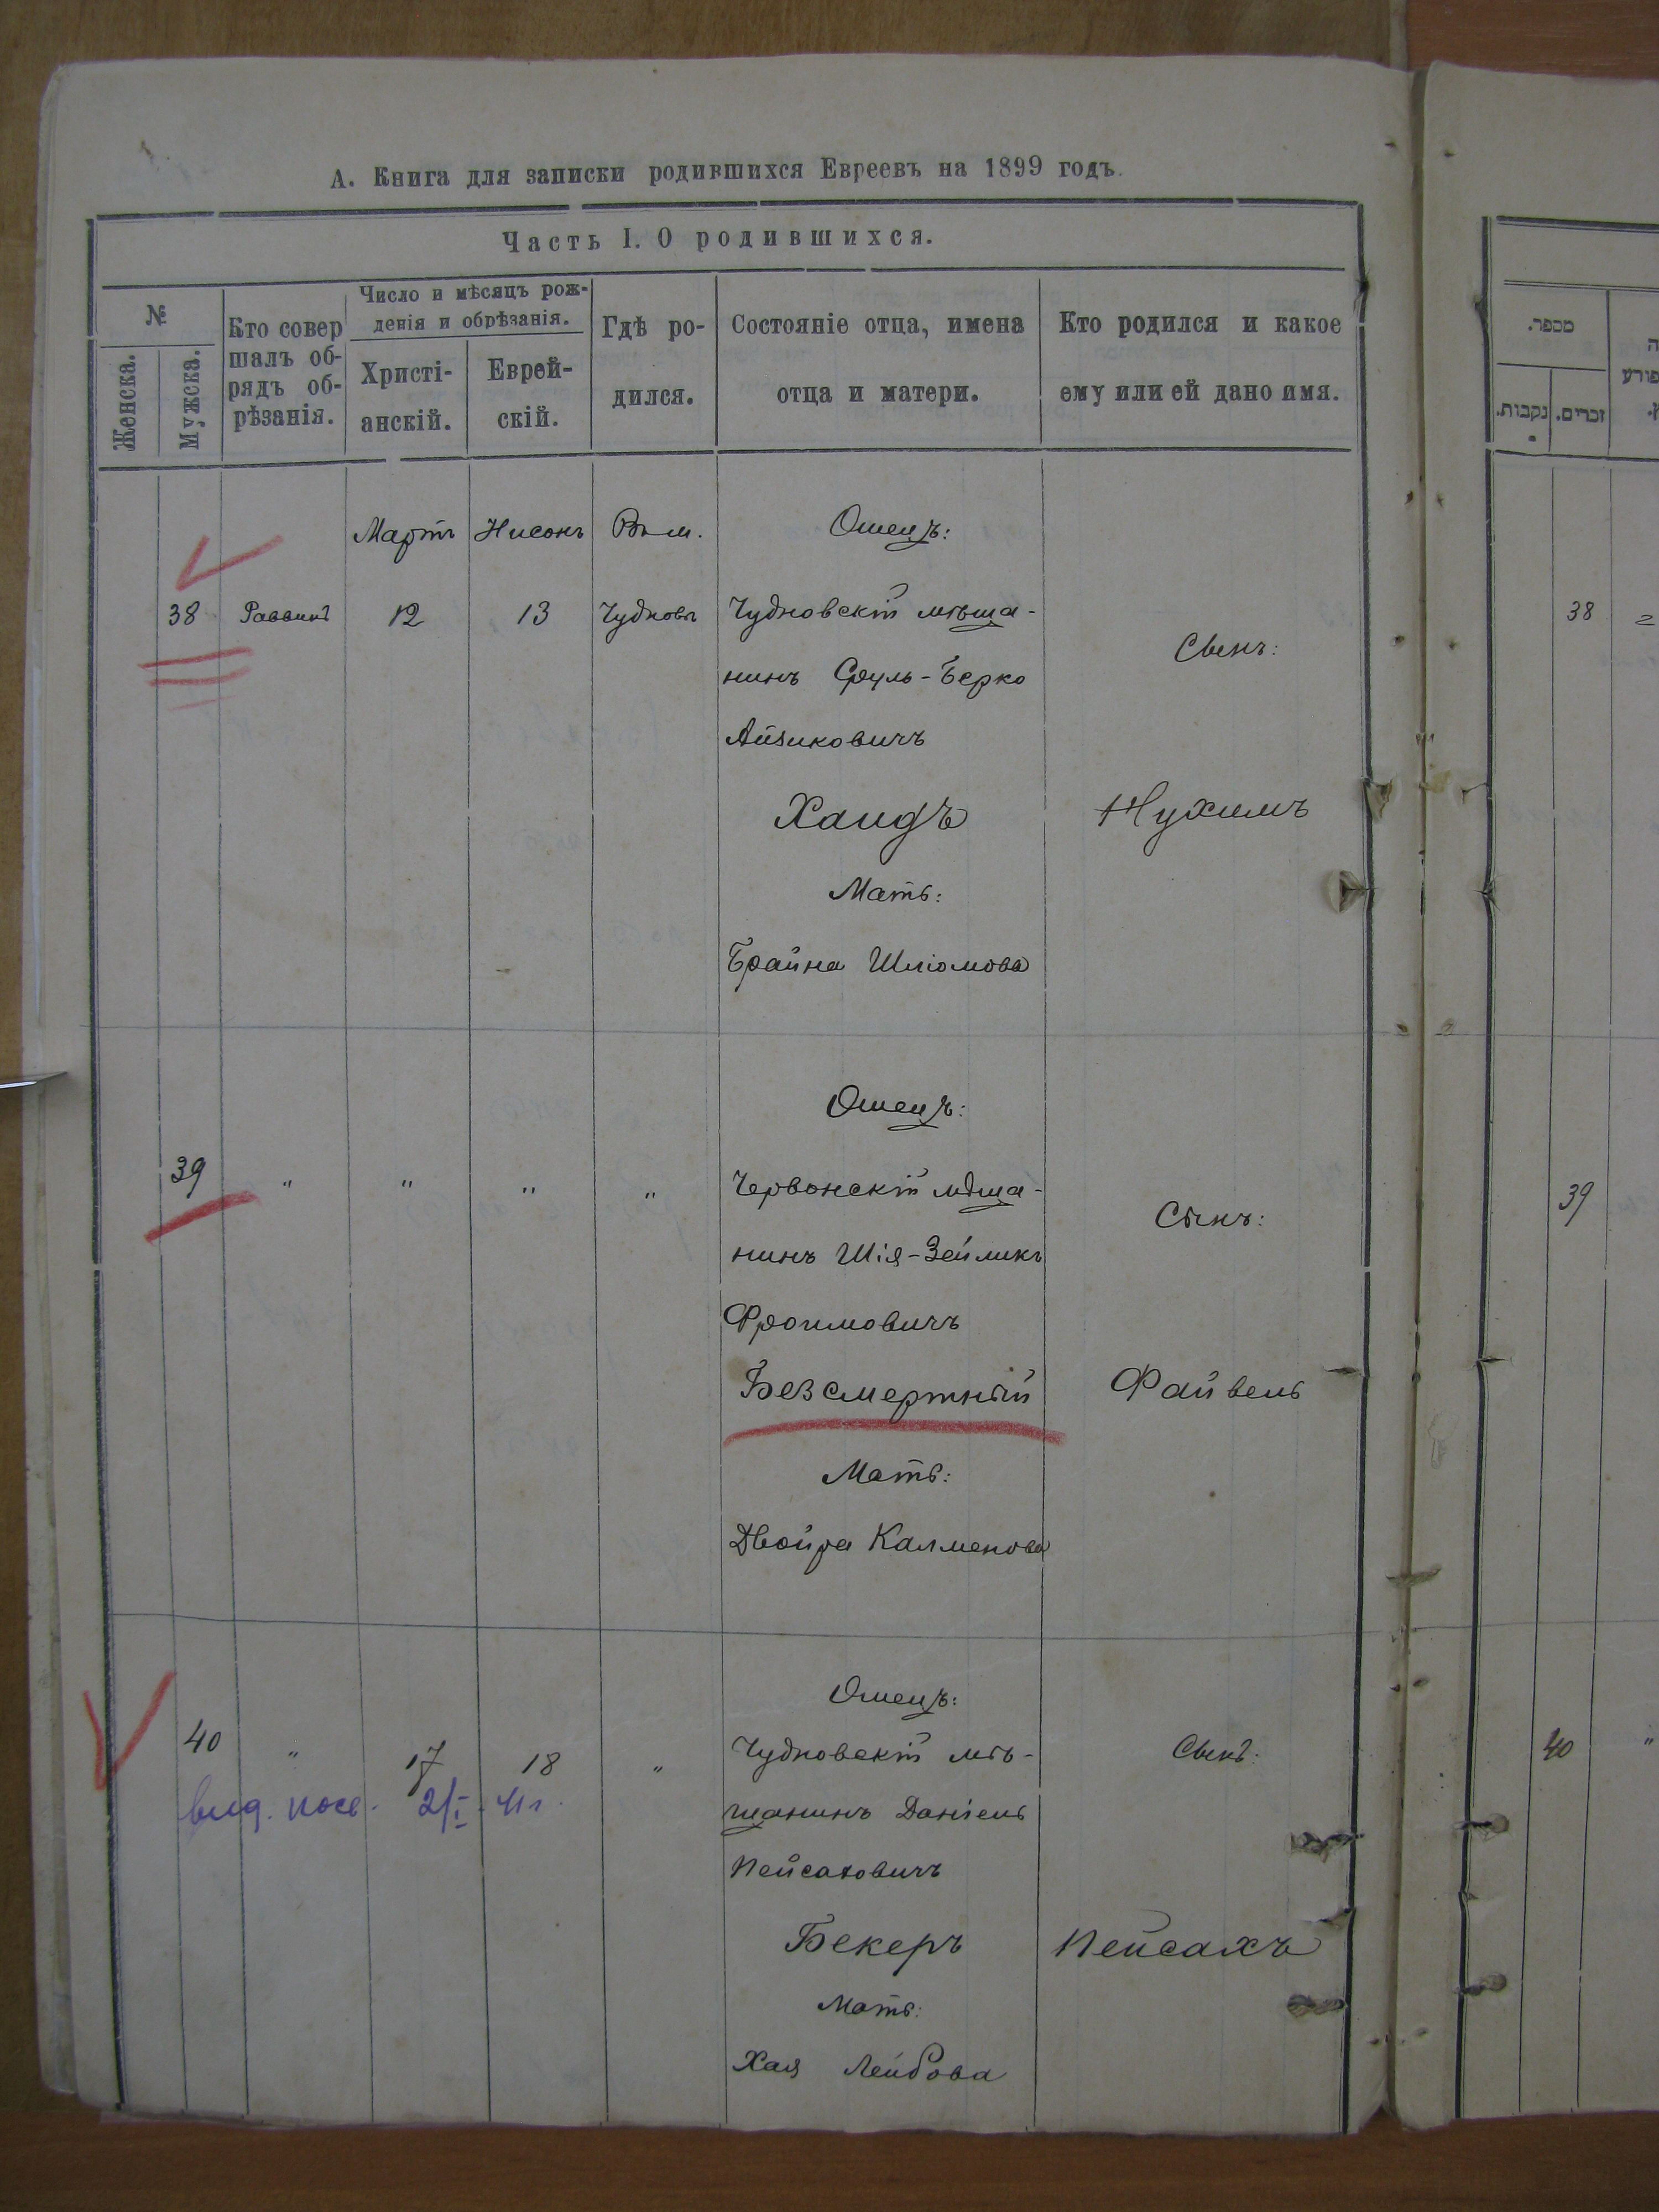 А. Книга для записки родившихся Евреевъ на 1899 годъ.
Часть I. О родившихся.
№
Женска.
Мужска.
Кто совер
шалъ об-
рядъ об-
рѣзанія.
Число и мѣсяцъ рож-
денія и обрѣзанія.
Христі-
анскій.
Еврей-
скій.
Гдѣ ро-
дился.
Состояніе отца, имена
отца и матери.
Кто родился и какое
ему или ей дано имя.
Мартъ Нисонъ Въ м.
Отецъ:
38 Раввинъ 12 13 Чудновъ
Чудновскій мѣща-
нинъ Сруль-Берко
Айзиковичъ
Хаидъ
Мать:
Брайна Шліомова
Сынъ:
Нухимъ
39 " " " "
Отецъ:
Червонскій мѣща-
нинъ Шія-Зейликъ
Фроимовичъ
Безсмертный
Мать:
Двойра Калменова
Сынъ:
Файвель
40 " 17 18 "
выд. 2/I - 41 г.
Отецъ:
Чудновскій мѣ-
щанинъ Даніель
Пейсаховичъ
Бекеръ
Мать:
Хая Лейбова
Сынъ:
Пейсахъ
מספר.
נקבות.
זכרים.
פורע
38
39
40 "